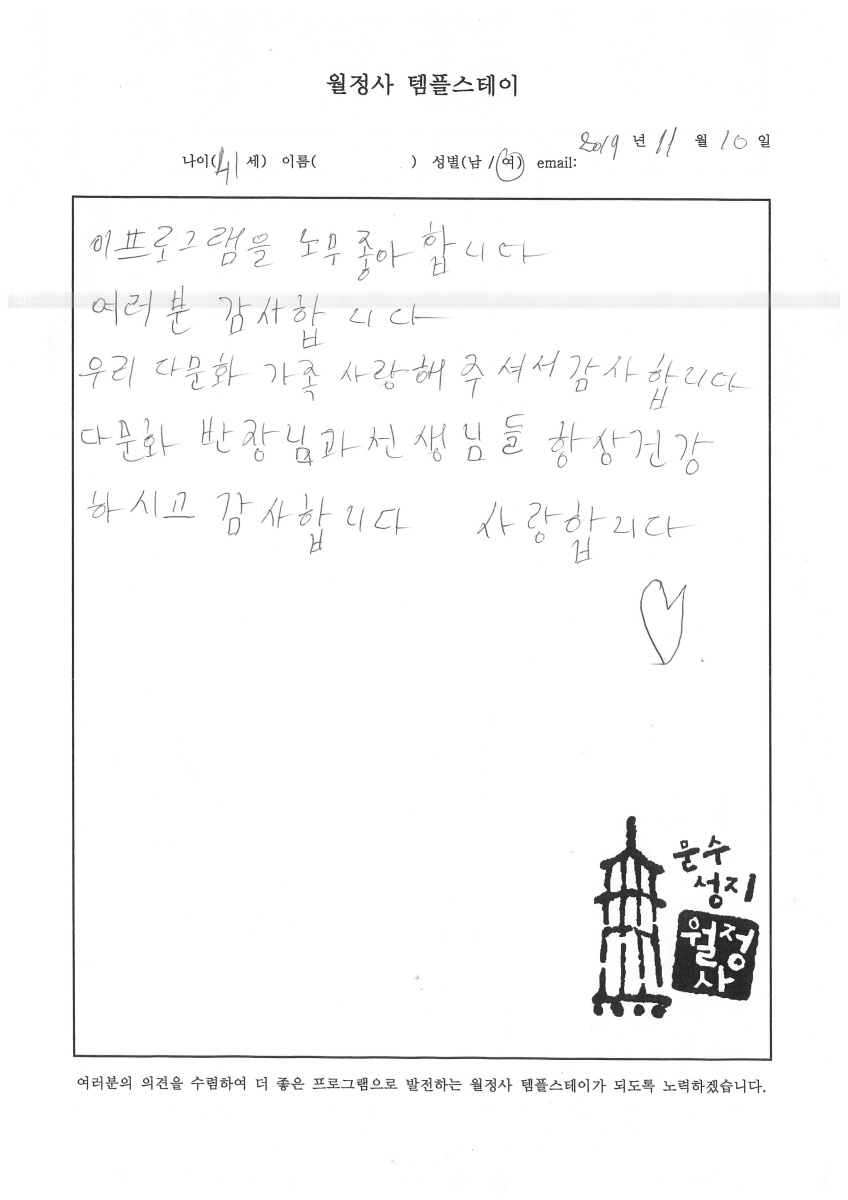 월정사 템플스테이
2019 년 11 월 10 일
나이(41 세) 이름( ) 성별(남 / 여) email:
이프로그램을 노무 좋아 합니다
여러분 감사합니다
우리 다문화 가족 사랑해 주셔서 감사합니다
다문화 반장님과 선생님들 항상건강
하시고 감사합니다 사랑합니다
문수
성지
월정
사
여러분의 의견을 수렴하여 더 좋은 프로그램으로 발전하는 월정사 템플스테이가 되도록 노력하겠습니다.